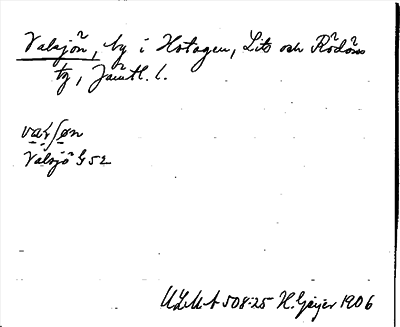 Valsjön, by i Hotagen, Lits och Rödöns
tg, Jämtl. l.
va̱ʟʃøn
Valsjö G 52
ULMA 508:25 H. Geijer 1906